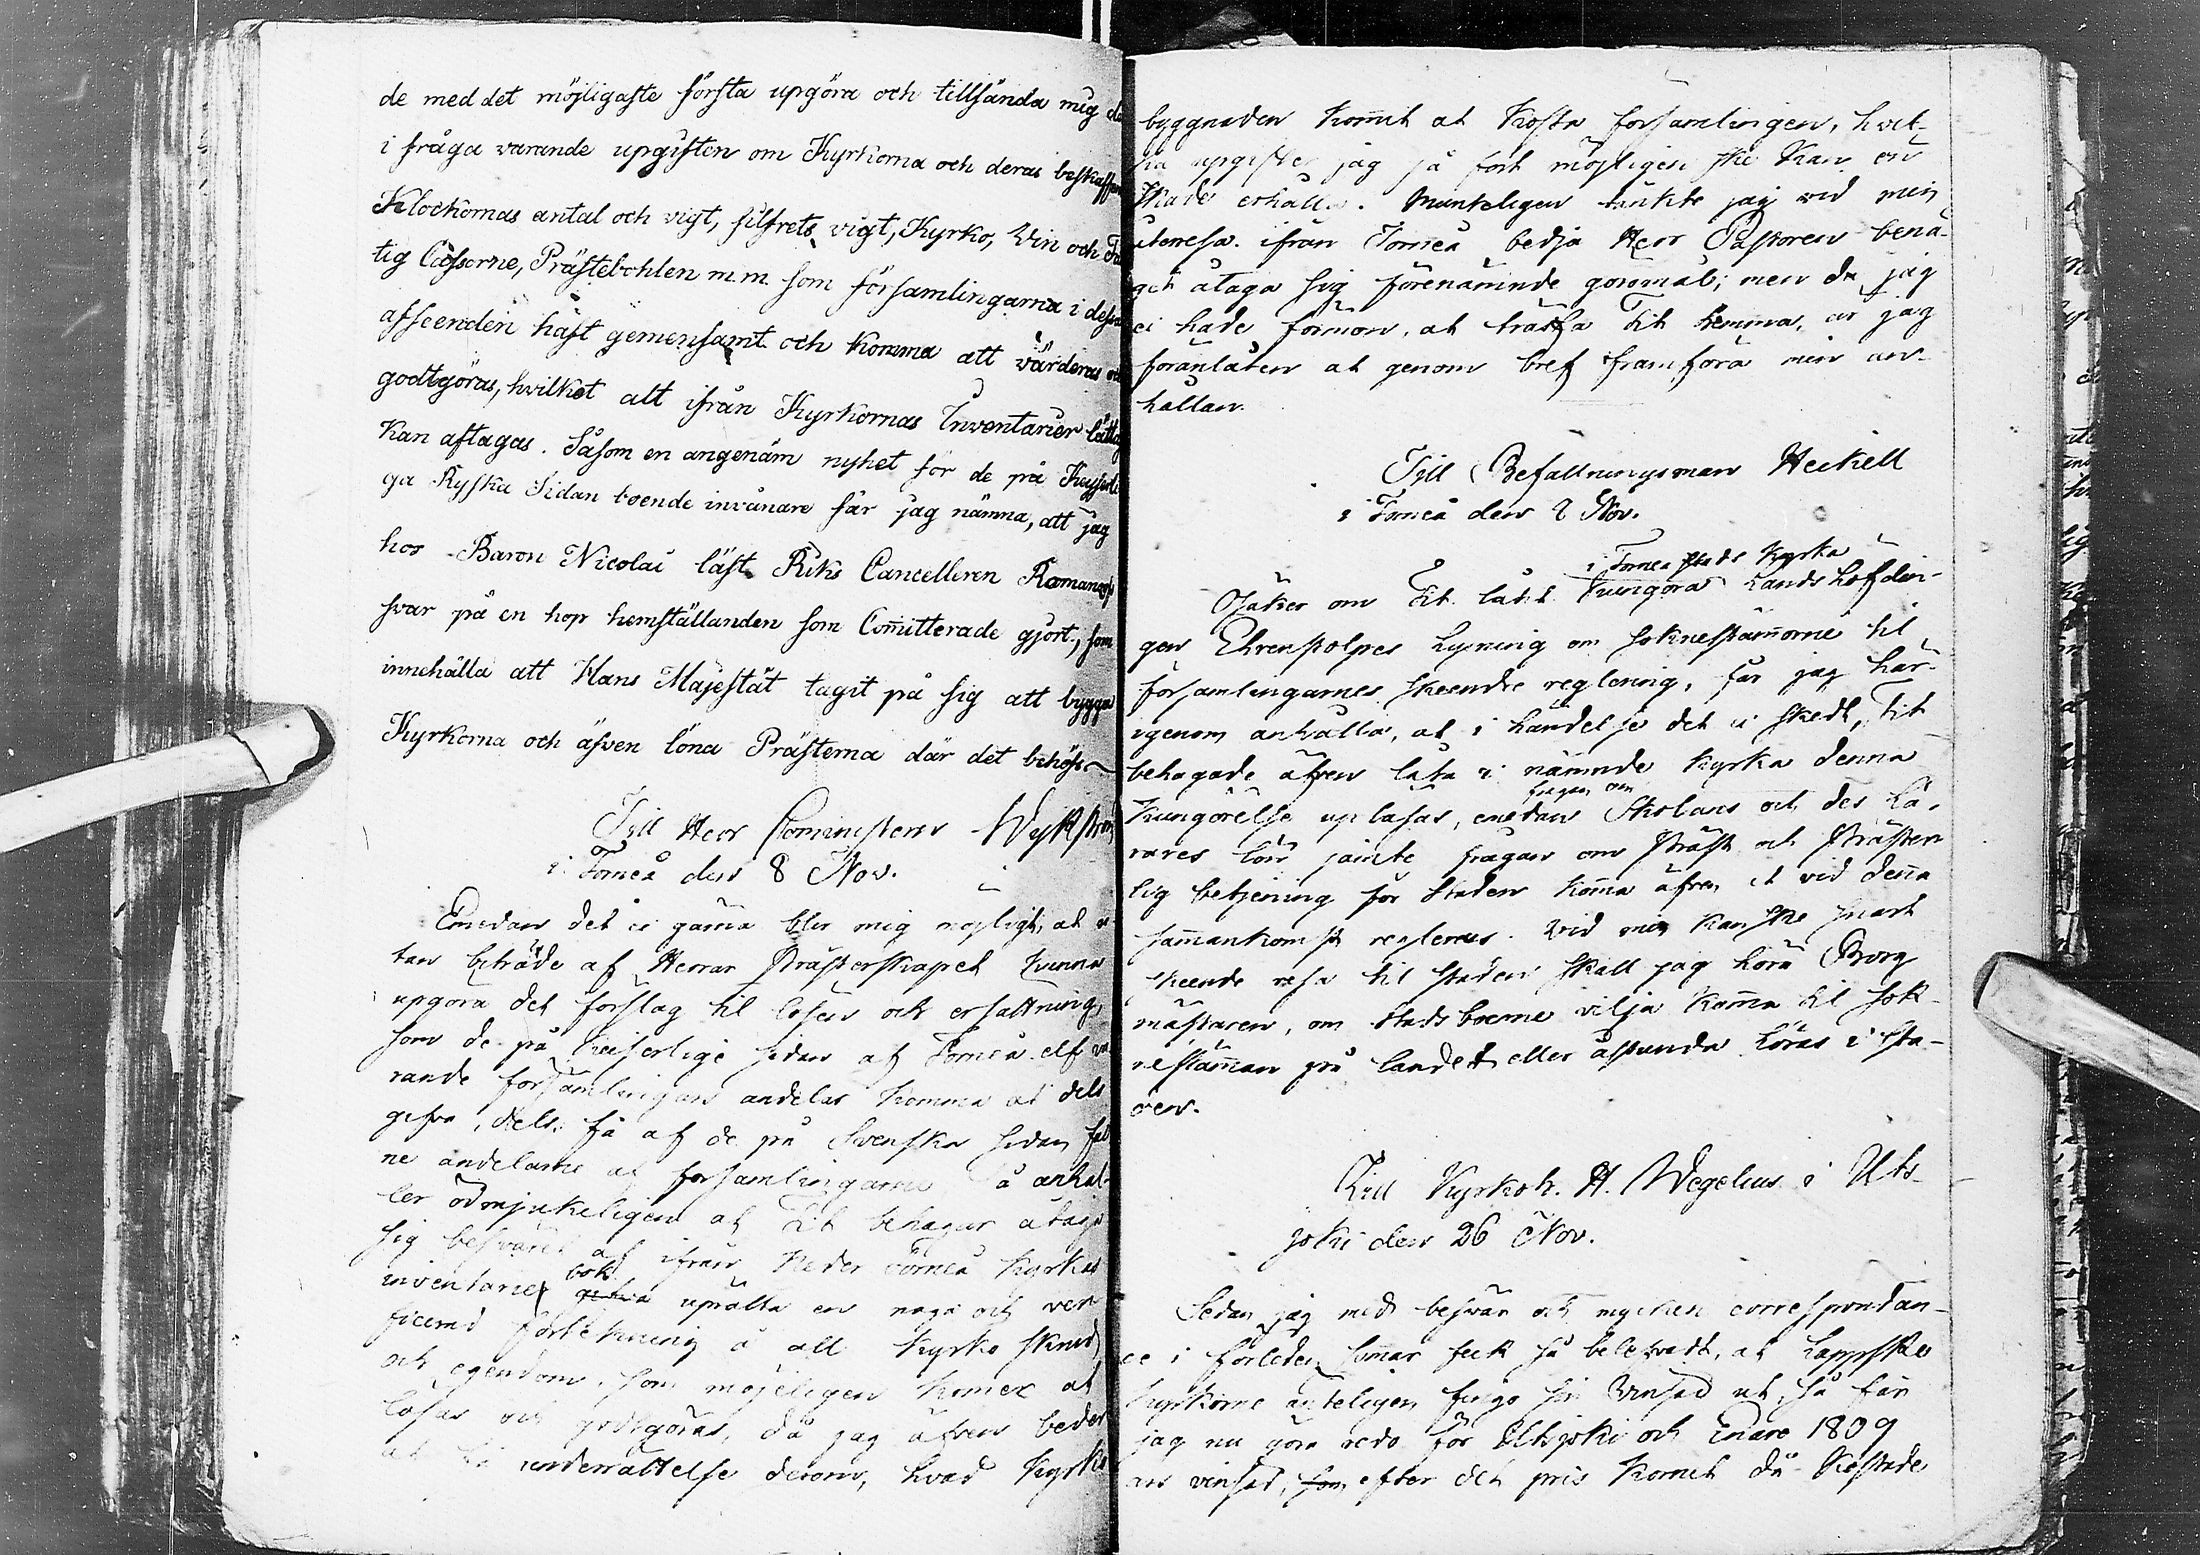 de med det möjligaste första upgöra och tillsända mig
i fråga varande upgiften om Kyrkorna och deras beskaffen
Klockornas antal och vigt, silfrets vigt, Kyrko, Vin och
tig Cassorne, Prästebohlen m.m. som församlingarna i dess
afseenden häft gemensamt och komma att värderas
godtgöras, hvilket alt ifrån Kyrkornas Inventarier lätt
kan aftagas. Såsom en angenäm nyhet för de på Keyserli
ga Ryska Sidan boende invånare får jag nämna, att jag
hos Baron Nicolai läst Riks Cancelleren Romanzof
svar på en hop hemställanden som Com̅itterade gjort, som
innehålla att Hans Majestät tagit på sig att bygga
Kyrkorna och äfven löna Prästerna där det behöfs
Till Herr Comminstern Wykström
i Torneå den 8 Nov.
Emedan det ej gärna blir mig möjligt, at u
tan biträde af Herrar Prästerskapet kunna
upgöra det förslag til lösen och ersättning,
som de på Keiserlige sidan af Torneå elf va
rande församlingars andelar komma at dels
gifva, dels få af de på Svenska sidan fal
ne andelarne af församlingarne så anhål
ler ödmjukeligen at Tit behagar åtaga
sig besväret at ifrån Neder Torneå Kyrkas
inventarie bok uprätta en noga och veri
ficerad förtekning å all Kyrko skrud
och egendom, som möjeligen kom̅er at
lösas och godtgöras, då jag äfven beder
at få underrättelse derom, hvad Kyrko
byggnaden kom̅it at kosta församlingen, hvil-
ka upgifter jag så fort möjligen ske kan ön
skade erhålla. Munteligen tänkte jag vid min
uteresa ifrån Torneå bedja Herr Pastoren benä-
get åtaga sig förenämnde gjöromål; men då jag
ei hade förmon, at träffa Tit hemma, är jag
föranlåten at genom bref framföra min an-
hållan.
Till Befallningsman Heikell
i Torneå den 8 Nov.
i Torneå stads kyrka
Osäker om Tit. låtit kungöra Landshöfdin-
gen Ehrenstolpes Lysning om soknestämorne til
församlingarnes skeende reglering, får jag här-
igenom anhålla, at i händelse det ei skedt, Tit
behagade äfven låta i nämnde kyrka denna
frågan om
kungörelse upläsas, emedan Skolans och des Lä-
rares lön jämte frågan om Präst och Präster
lig betjening för Staden kom̅a äfven at vid denna
sam̅ankomst regleras. Vid min kanske snart
skeende resa til staden skall jag höra Borg
mästaren, om stadsboerne vilja kom̅a til sok-
nestäm̅an på landet eller åstunda höras i sta-
den.
Till Kyrkoh. H. Wegelius i Uts-
joki den 26 Nov.
Sedan jag med besvär och mycken correspondan-
ce i förleden som̅ar feck så bestyradt, at Lappske
kyrkorne änteligen fingo sin vinsäd ut, så får
jag nu göra redo för Utsjoki och Enare 1809
års vinsäd, som efter det pris kornet då kostade